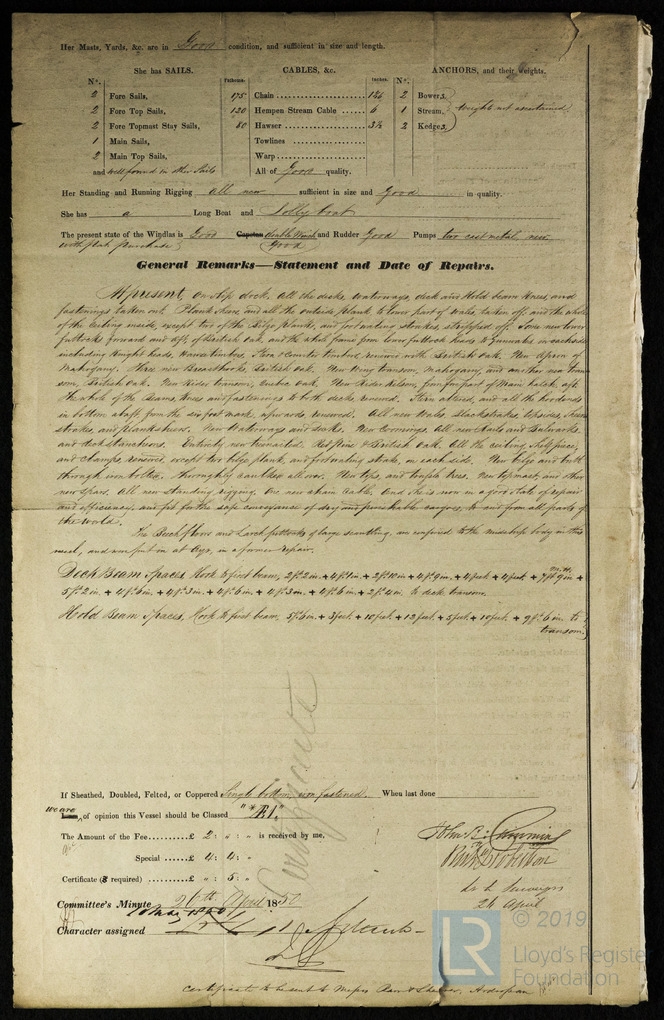 Her Masts, Yards, &c. are in Good condition, and sufficient in size and length.
She has SAILS. CABLES, &c. ANCHORS, and their Weights.
No. Fathoms. Inches. No.
2 Fore Sails, 175 Chain 1 2 Bowers,
2 Fore Top Sails, 120 Hempen Stream Cable 6 1 Stream, Weights not ascertained
2 Fore Topmast Stay Sails, 80 Hawser 3½ 2 Kedges,
1 Main Sails, Towlines
2 Main Top Sails, Warp
and well found in other Sails All of Good quality.
Her Standing and Running Rigging all new sufficient in size and Good in quality.
She has a Long Boat and Jolly boat
The present state of the Windlas is Good Capstan double Winch and Rudder Good Pumps two cast metal, new
with patent purchase Good
General Remarks—Statement and Date of Repairs.
At present, on slip dock. All the decks, waterways, deck and Hold beam Knees, and
fastenings taken out. Plank Sheer and all the outside plank to lower part of Wales, taken off, and the whole
of the Ceiling inside, except two of the Bilge planks, and foot waling strakes, stripped off. Some new lower
futtocks forward and aft of British Oak, and the whole frame from lower futtock heads to gunwales in each side
including Knight heads, Hawse timbers, Stern & Counter timbers, renewed with British Oak. New Apron of
Mahogany. Three new Breasthooks, British Oak. New Wing transom, Mahogany, and another new tran
som, British Oak. New Rider transom, Quebec Oak. New Rider Kelson, from fore part of Main hatch, aft
The whole of the Beams, Knees and fastenings to both decks, renewed. Stern altered, and all the hoodends
in bottom abaft from the six foot mark, upwards renewed. All new Wales, blackstrakes, topsides, Sheer
strakes, and planksheers. New Waterways and decks. New Comings. All new Rails and Bulwarks,
and deck stancheons. Entirely new treenailed. Red Pine & British Oak. All the ceiling, Shelf piece,
and Clamps, renewed, except two bilge plank, and foot waling strake, in each side. New bilge and butt
through iron bolts, thoroughly caulked all over. New tops, and trussle trees. New topmast, and other
new spars. All new standing rigging. One new chain Cable. And she is now in a good state of repair
and efficiency, and fit for the safe conveyance of dry and perishable cargoes, to and from all parts of
the World.
The Beech floors and Larch futtocks of large scantling, are confined to the midship body in this
vessel, and were put in at Ayr, in a former repair.
Deck Beam Spaces, Hook to first beam, 2ft 2in. + 4ft 1in. + 2ft 10in + 4ft 9in. + 4feet + 4feet + 7ft 9in +
M.H.
5ft 2in. + 4ft 6in. + 4ft 3in. + 4ft 6in + 4ft 3in. + 4ft 6in + 2ft 4in to deck transom.
Hold Beam Spaces, Hook to first beam. 5ft 6in + 3feet + 10feet + 12feet + 5feet + 10feet + 9ft 6in to
transom
Certificate
If Sheathed, Doubled, Felted, or Coppered Single bottom, iron fastened. When last done
we are of opinion this Vessel should be Classed "Æ1."
The Amount of the Fee £ 2 : " : " is received by me,
Special £ 4 : 4 : "
Certificate (if required) £ " : 5 : "
Committee's Minute 26th April 1850
Character assigned
John B. Cumming
Robertson
Surveyors
24 April
Certificate to be sent to Messrs & Ardrossan
© 2019
LR
Lloyd's Register
Foundation